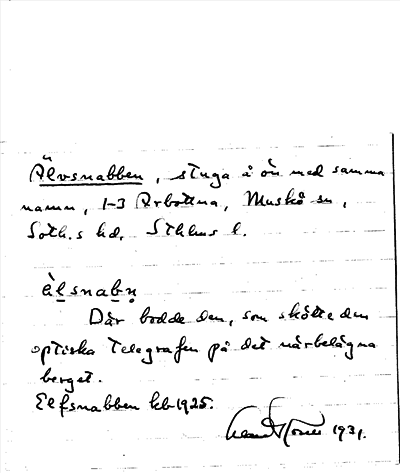 Älvsnabben, stuga å ön med samma
namn, 1-3 Arbottna, Muskö sn,
Soth.s hd, Sthlms l.
àlsnabṇ
Där bodde den, som skötte den
optiska telegrafen på det närbelägna
berget.
Elfsnabben kb 1925.
1931.